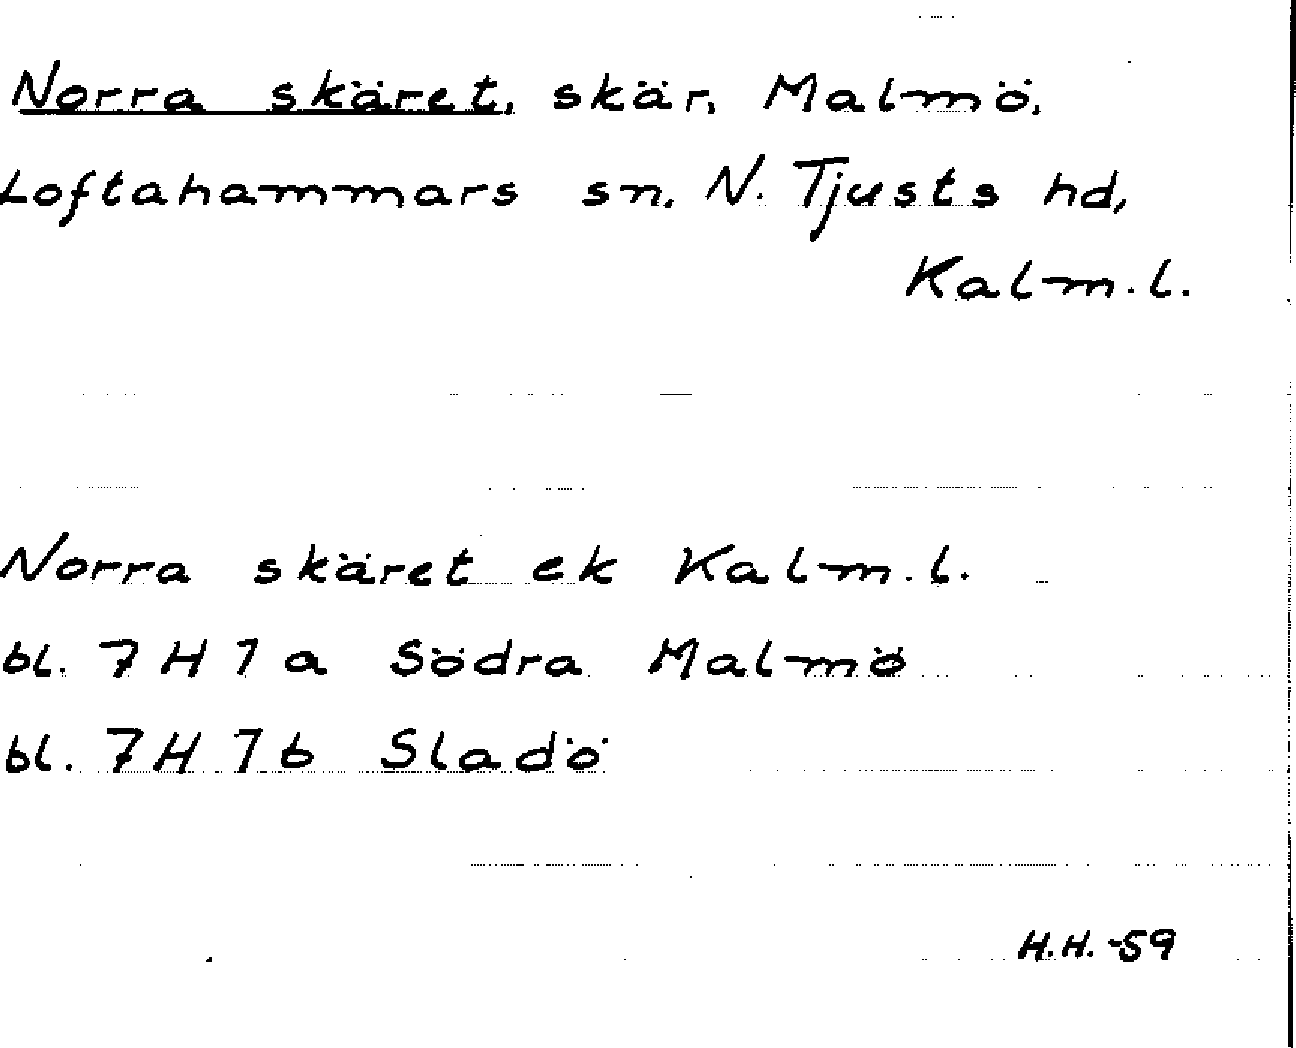 Norra skäret, skär, Malmö,
Loftahammars sn. N. Tjusts hd,
Kalm. l.
Norra skäret ek Kalm. l.
bl. 7 H 7 a Södra Malmö
bl. 7 H 7 b Sladö
H.H. -59